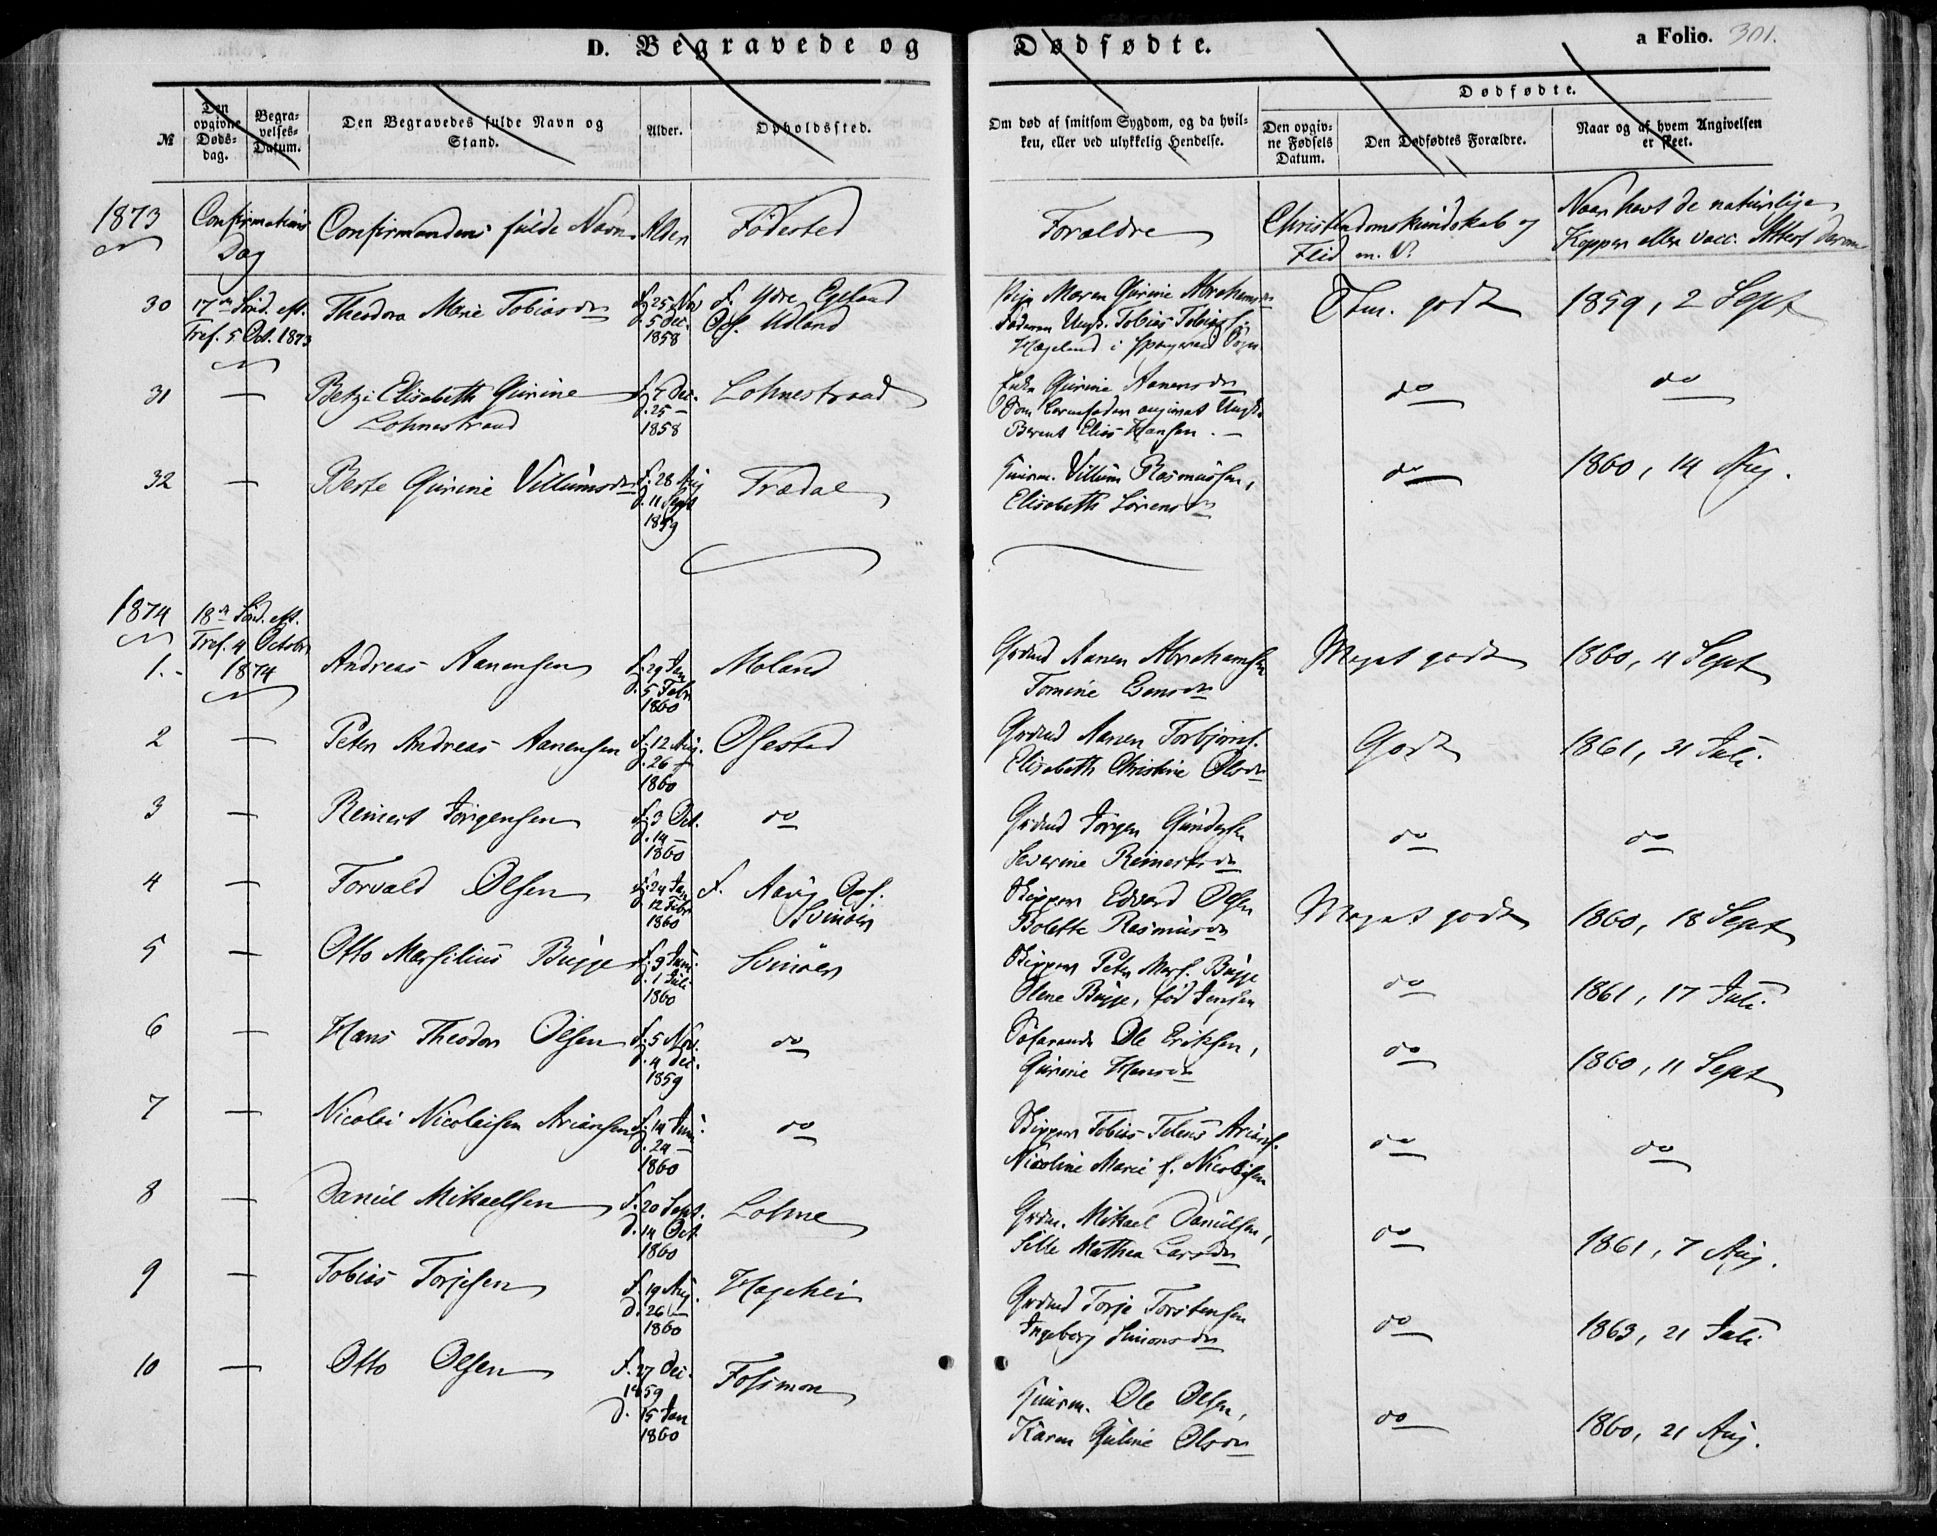 D. Begravede og Dødfødte.
a Folio. 301.
№
Den opgivne Døds-dag.
Begra-velses-Datum.
Den Begravedes fulde Navn og Stand.
Alder.
Opholdssted.
Om død af smitsom Sygdom, og da hvil-
ken, eller ved ulykkelig Hendelse.
Dødfødte.
Den opgiv-
ne Fødsels
Datum.
Den Dødfødtes Forældre.
Naar og af hvem Angivelsen
er skeet.
1873 Confirmations Dag
Confirmandens fulde Navn Alder Fødested
Forældre
Christendomskundskab og
Flid m. V.
Naar havt de naturlige
Kopper eller vacc. Attest derom
30 17de Sønd. eft. Tref. 5 Oct. 1873
Theodora Marie Tobiasdr
f. 25 Nov d. 5 Dec. 1858
f. Ydre Egeland
Opf. Udland
Pige Maren Gurine Abrahamsdr
Faderen Ungk. Tobias Tobias
Hægeland i Sogn
Tem. godt
1859, 2 Sept
31 —
Betzi Elisabeth Gurine
Lohnestrand
f. 7 Dec. d. 25 — 1858
Lohnestrand
Enke Gurine Aanensdr
Som Barnefader angivet Ungk.
Berent Elias Hansen. —
do
do
32 —
Berte Gurine Villumsdr
f. 28 Aug d. 11 Sept 1859
Trædal
Huusm. Villum Rasmussen,
Elisabeth Sørensdr
do
1860, 14 Aug.
1874 18de Sønd. eft.
Tref. 4 October
1874
1. Andreas Aanensen
f. 29 Jan d. 5 Febr 1860
Moland
Grdmd Aanen Abrahamsen
Tomine Evensdr
Meget godt
1860, 11 Sept
2 —
Peter Andreas Aanensen
f. 12 Aug. d. 26 — 1860
Øfstad
Grdmd Aanen Torbjørns.
Elisabeth Christine Olsdr
Godt
1861, 31 Juli
3 —
Reinert Jørgensen
f. 3 Oct. d. 14 — 1860
do
Grdmd Jørgen Gundersen
Severine Reinertsdr
do
do
4 —
Torvald Olsen
f. 24 Jan d. 12 Febr 1860
f. Aavig Opf:
Svinøer
Skipper Edvard Olsen
Bolette Rasmusdr
Meget godt
1860, 18 Sept
5 —
Otto Marsilius Bugge
f. 9 Juni d. 1 Juli 1860
Svinøer
Skipper Peter Mars. Bugge
Olene Bugge, fød Jensen
do
1861, 17 Juli
6 —
Hans Theodor Olsen
f. 5 Nov. d. 4 Dec. 1859
do
Søfarende Ole Eriksen,
Gurine Hansdr
do
1860, 11 Sept
7 —
Nicolai Nicolaisen Ariansen
f. 14 Juni d. 24 — 1860
do
Skipper Tobias Telius Arians.
Nicoline Marie f. Nicolaisen
do
do
8 —
Daniel Mikaelsen
f. 20 Sept. d. 14 Oct 1860
Lohne
Grdm. Mikael Danielsen,
Sille Mathea Larsdr
do
1861, 7 Aug.
9 —
Tobias Torjesen
f. 19 Aug. d. 26 — 1860
Hagehei
Grdmd Torje Torstensen
Ingeborg Simonsdr
do
1863, 21 Juli
10 —
Otto Olsen
f. 27 Dec. 1859
d. 15 Jan 1860
Fossmon
Huusm. Ole Olsen,
Karen Guline Olsdr
do
1860, 21 Aug.